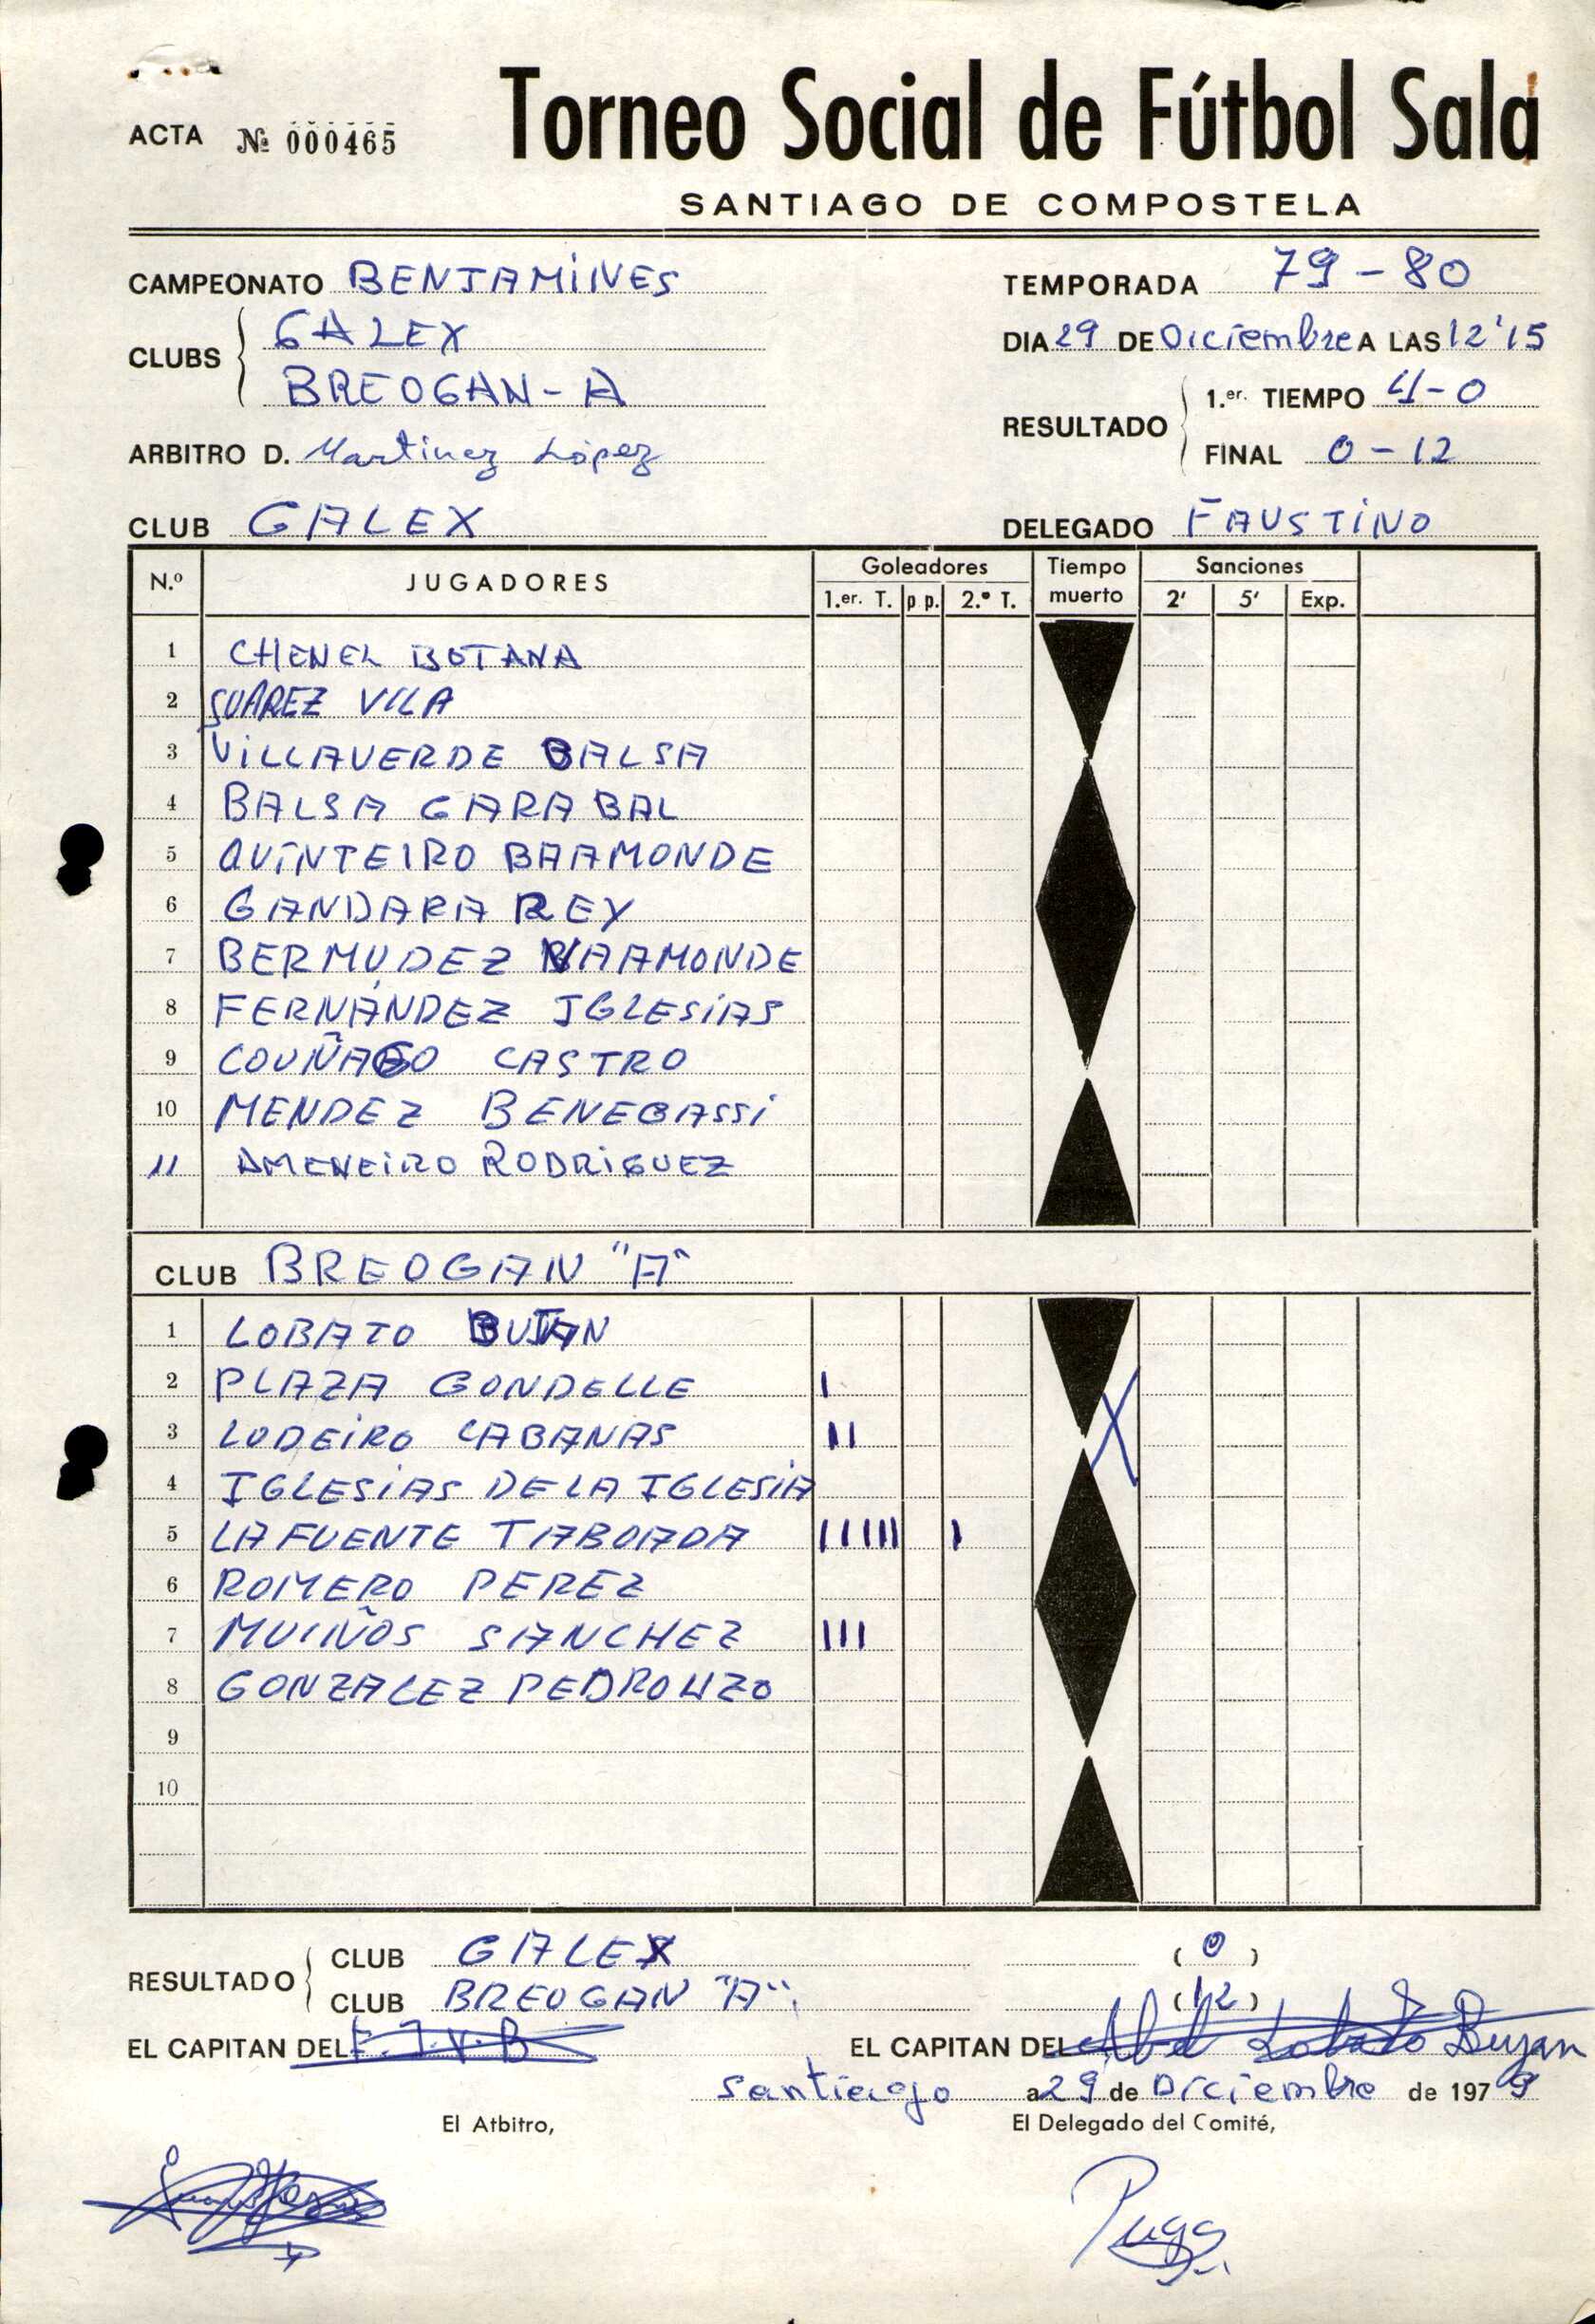 ACTA № 000465
Torneo Social de Fútbol Sala
SANTIAGO DE COMPOSTELA
CAMPEONATO BENJAMINES
TEMPORADA 79-80
CLUBS GALEX
BREOGAN-A
DIA 29 DE Diciembre A LAS 12'15
RESULTADO 1.er. TIEMPO 4-0
FINAL 0-12
ARBITRO D. Martinez López
CLUB GALEX
DELEGADO FAUSTINO
N.º JUGADORES Goleadores Tiempo muerto Sanciones
1.er. T. p p. 2.º T. 2' 5' Exp.
1 CHENEL BOTANA
2 SUAREZ VILA
3 VILLAVERDE BALSA
4 BALSA GARABAL
5 QUINTEIRO BAAMONDE
6 GANDARA REY
7 BERMUDEZ BAAMONDE
8 FERNÁNDEZ IGLESIAS
9 COUÑAGO CASTRO
10 MENDEZ BENEGASSI
11 AMENEIRO RODRIGUEZ
CLUB BREOGAN "A"
1 LOBATO BUJAN
2 PLAZA GONDELLE I
3 LODEIRO CABANAS II
4 IGLESIAS DE LA IGLESIA
5 LAFUENTE TABOADA IIIIII I
6 ROMERO PEREZ
7 MUIÑOS SANCHEZ III
8 GONZALEZ PEDROUZO
9
10
RESULTADO CLUB GALEX (0)
CLUB BREOGAN "A" (12)
EL CAPITAN DEL F.J.V.B
EL CAPITAN DEL Abel Lobato Bujan
Santiago a 29 de Diciembre de 1979
El Atbitro,
El Delegado del Comité,
Puga